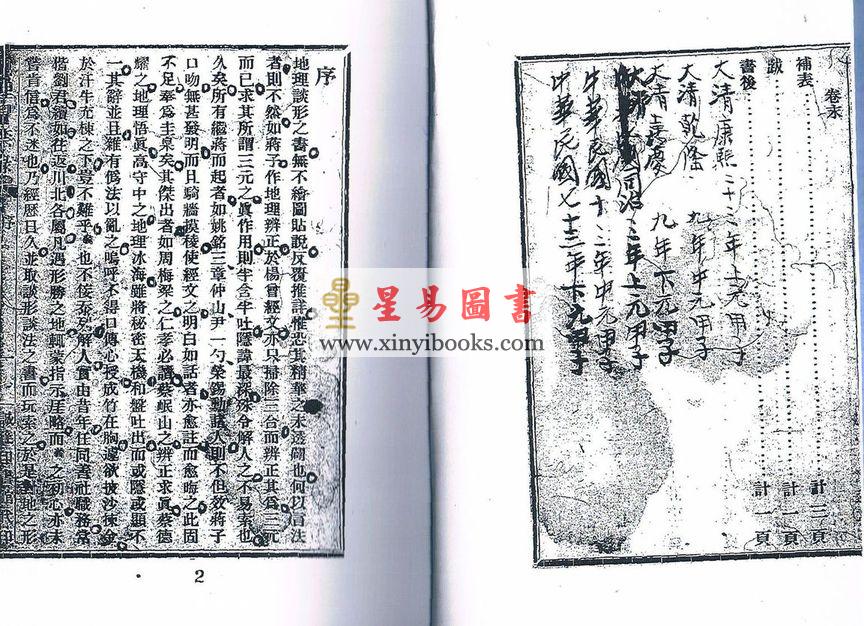 卷末
補表 計二頁
跋 計一頁
書後 計一頁
大清康熙二十三年上元甲子
大清乾隆九年中元甲子
大清嘉慶九年下元甲子
同治三年上元甲子
中華民國十三年中元甲子
中華民國七十三年下元甲子
星易圖書
www.xinyibooks.com
序
地理談形之書無不繪圖貼說反覆推詳惟恐其精華之未透闢也何以言法
者則不然如蔣子作地理辨正於楊曾經文亦只掃除三合而辨正其為三元
而已求其所謂三元之眞作用則半含半吐隱諱最深殊令解人之不易索也
久矣所有繼蔣而起者如姚銘三章仲山尹一勺榮錫勳諸人則不但效蔣子
口吻無甚發明而且騎牆摸稜使經文之明白如話者亦愈註而愈晦之此固
不足奉為圭臬矣其傑出者如周梅梁之仁孝必讀蔡岷山之辨正求眞蔡德
耀之地理悟眞高守中之地理冰海雖將秘密天機和盤吐出而或隱或顯不
一其辭並且雜有偽法以亂之嗚呼不得口傳心授成竹在胸遽欲披沙揀金
於汗牛充棟之下豈不難乎 也不佞 解人實由昔年任同善社職務常
偕劉君 如往返川北各屬凡遇形勝之地輒蒙指示崖略而 之初心亦未
嘗肯信為不迷也乃經歷日久並取談形談法之書而玩索之於是 地之形
2